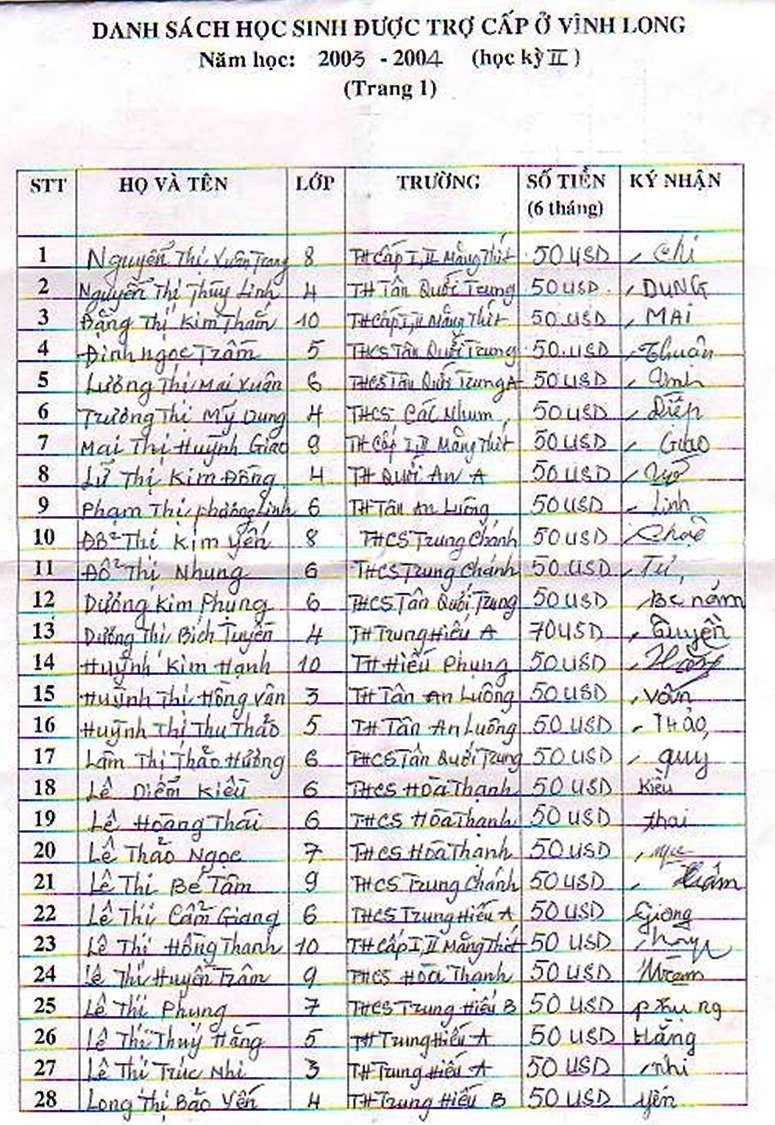 DANH SÁCH HỌC SINH ĐƯỢC TRỢ CẤP Ở VĨNH LONG
Năm học: 2003 - 2004 (học kỳ II)
(Trang 1)
STT HỌ VÀ TÊN LỚP TRƯỜNG SỐ TIỀN (6 tháng) KÝ NHẬN
1 Nguyễn Thị Xuân Trang 8 TH Cấp I, II Măng Thít 50 USD Chi
2 Nguyễn Thị Thùy Linh 4 TH Tân Quới Trung 50 USD DUNG
3 Đặng Thị Kim Thắm 10 TH Cấp I, II Măng Thít 50 USD MAI
4 Đinh Ngọc Trầm 5 THCS Tân Quới Trung 50 USD Thuân
5 Lương Thị Mai Xuân 6 THCS Tân Quới Trung A 50 USD
6 Trương Thị Mỹ Dung 4 THCS Cái Nhum 50 USD Diệp
7 Mai Thị Huỳnh Giao 9 TH Cấp I, II Măng Thít 50 USD Giao
8 Lữ Thị Kim Đồng 4 TH Quới An A 50 USD
9 Phạm Thị phương Linh 6 TH Tân An Luông 50 USD Linh
10 Đỗ Thị Kim Yến 8 THCS Trung Chánh 50 USD
11 Đỗ Thị Nhung 6 THCS Trung Chánh 50 USD Tư
12 Dương Kim Phụng 6 THCS Tân Quới Trung 50 USD Bc năm
13 Dương Thị Bích Tuyền 4 TH Trung Hiếu A 70 USD Quyền
14 Huỳnh Kim Hạnh 10 TH Hiếu Phụng 50 USD
15 Huỳnh Thị Hồng Vân 3 TH Tân An Luông 50 USD Vân
16 Huỳnh Thị Thu Thảo 5 TH Tân An Luông 50 USD THẢO
17 Lâm Thị Thảo Hương 6 THCS Tân Quới Trung 50 USD quy
18 Lê Diễm Kiều 6 THCS Hòa Thạnh 50 USD Kiều
19 Lê Hoàng Thái 6 THCS Hòa Thạnh 50 USD thai
20 Lê Thảo Ngọc 7 THCS Hòa Thạnh 50 USD
21 Lê Thị Bé Tâm 9 THCS Trung Chánh 50 USD
22 Lê Thị Cẩm Giang 6 THCS Trung Hiếu A 50 USD Giong
23 Lê Thị Hồng Thanh 10 TH Cấp I, II Măng Thít 50 USD
24 Lê Thị Huyền Trâm 9 THCS Hòa Thạnh 50 USD
25 Lê Thị Phụng 7 THCS Trung Hiếu B 50 USD phụng
26 Lê Thị Thúy Hằng 5 TH Trung Hiếu A 50 USD Hằng
27 Lê Thị Trúc Nhi 3 TH Trung Hiếu A 50 USD nhi
28 Long Thị Bảo Yến 4 TH Trung Hiếu B 50 USD yến